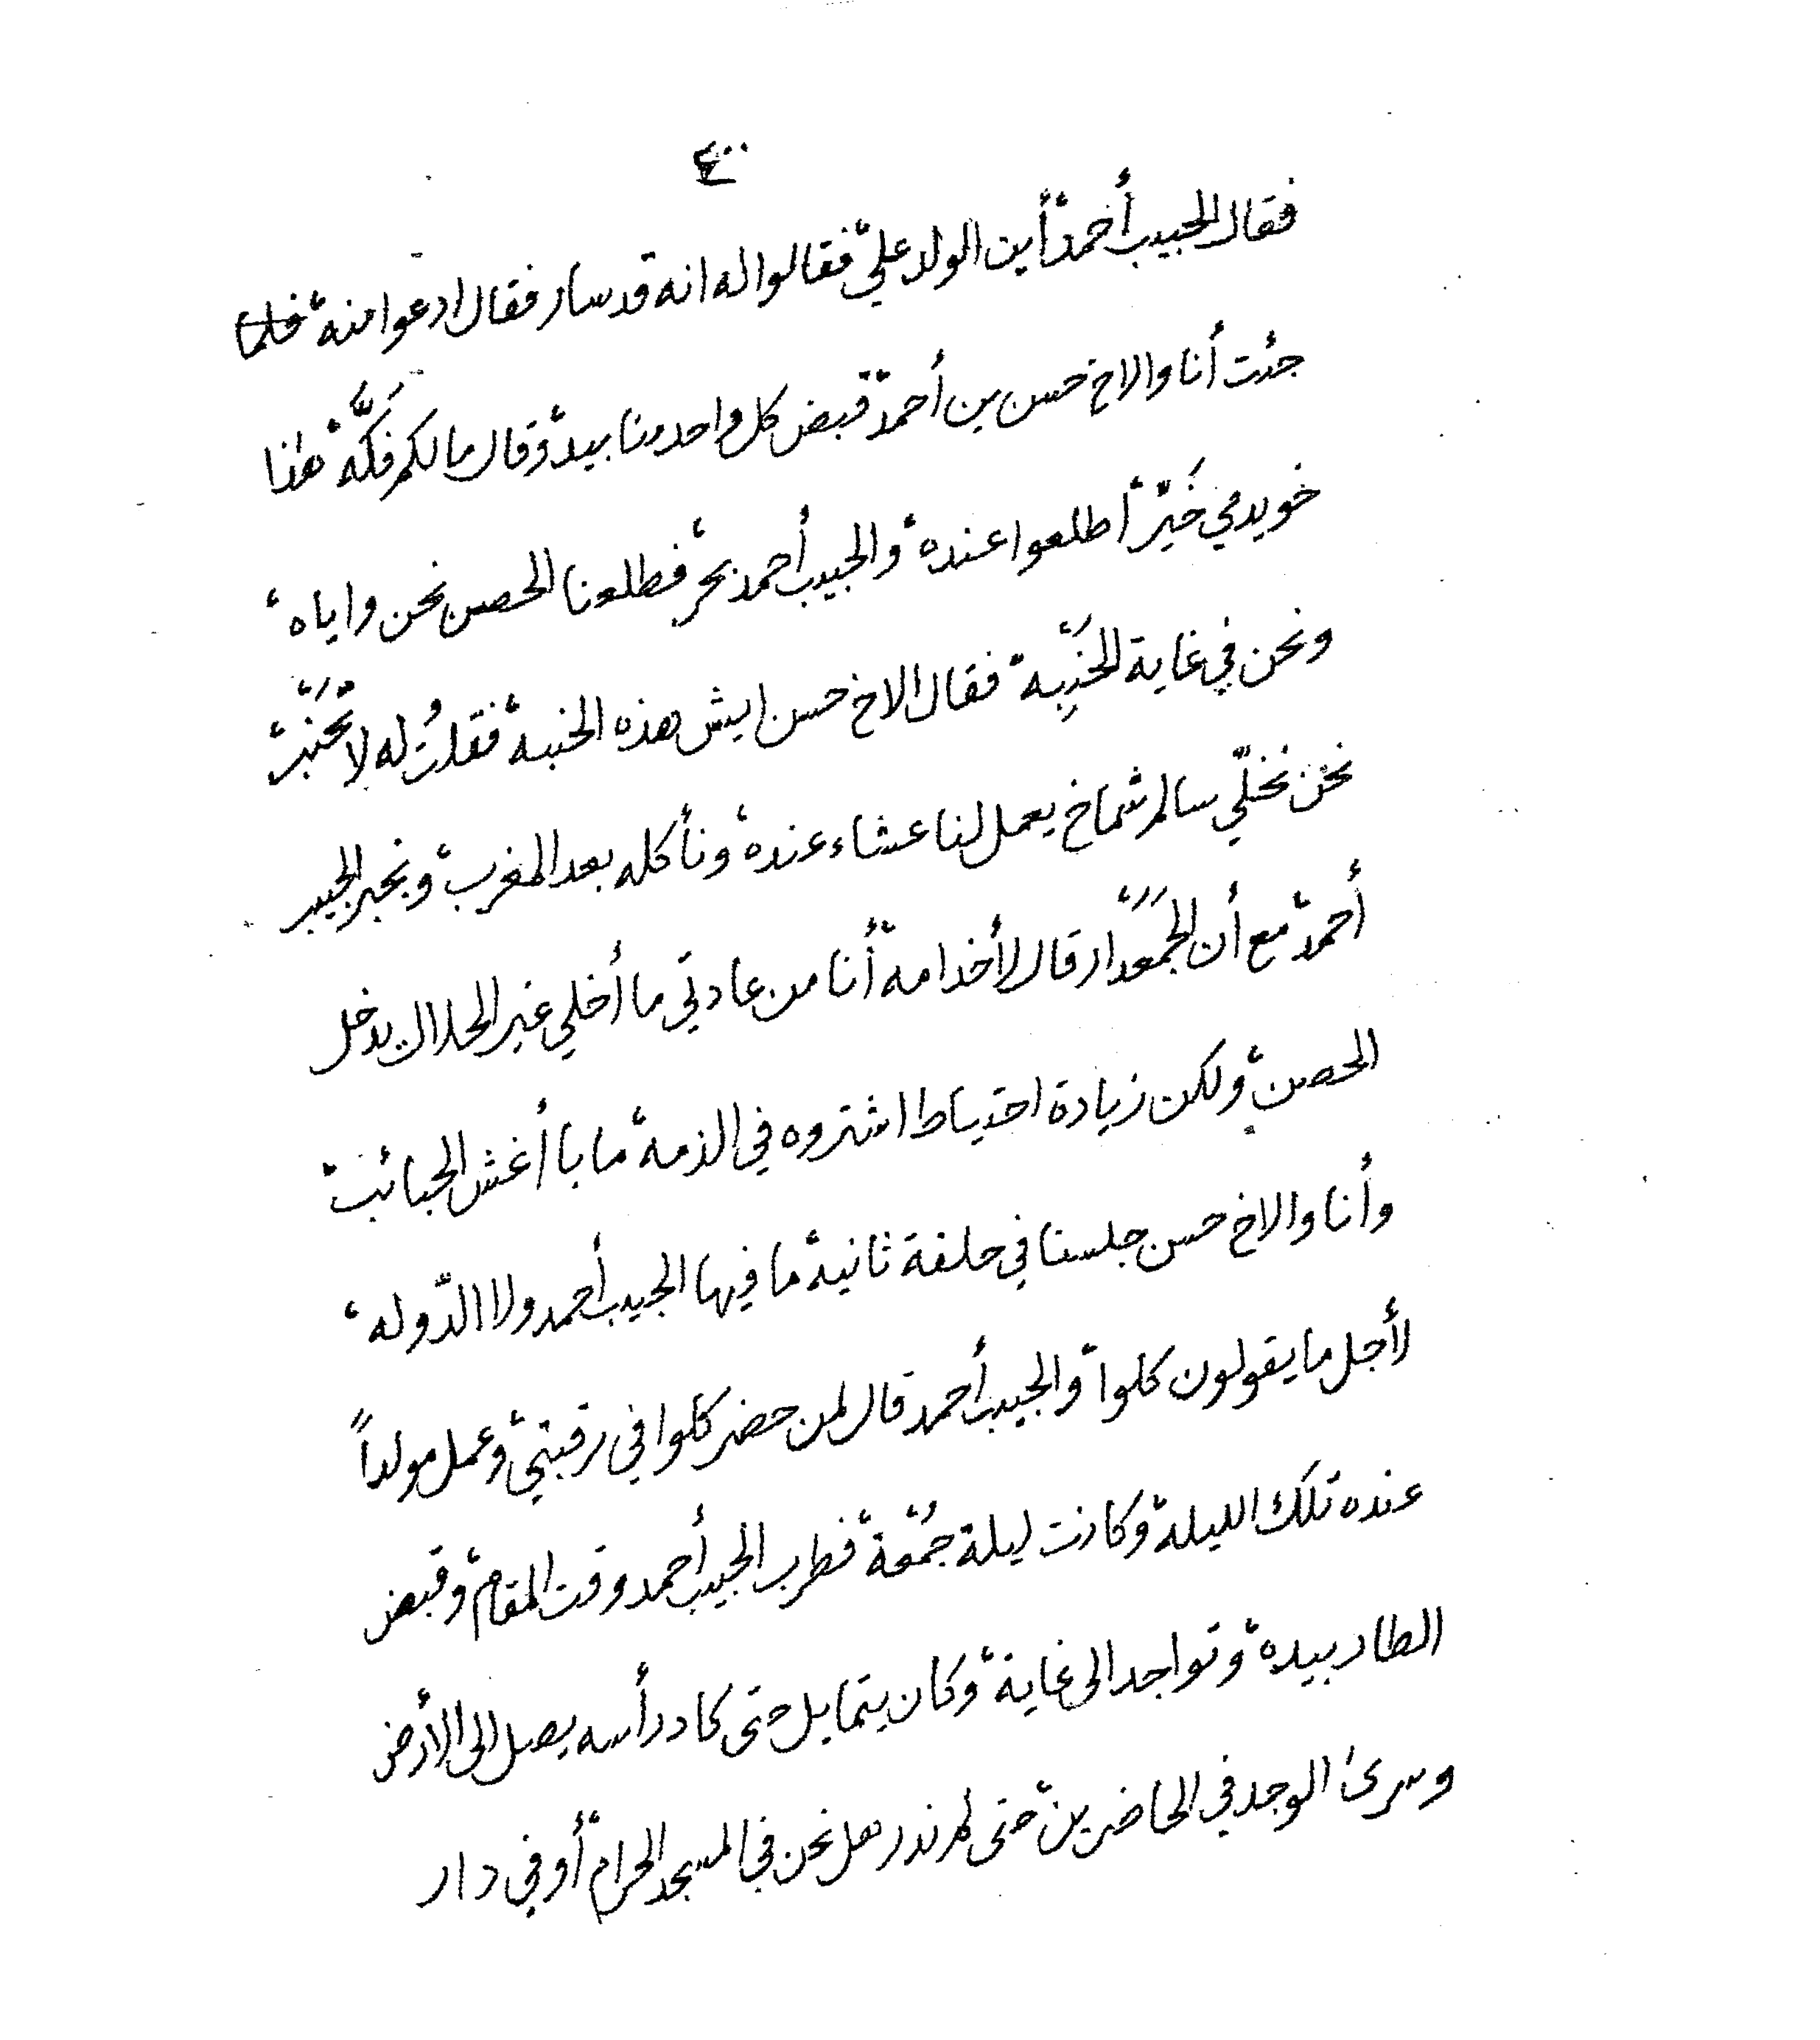 ٤٠٠
فقال الحبيب أحمد، أين الولد علي، فقالوا له انه قد سار فقال ادعوا منه، فلما
جئت أنا والاخ حسن بن أحمد، قبض كل واحد منا بيد، وقال مالكم فَكَّه، هذا
خويدمي خَيّر، اطلعوا عنده، والحبيب أحمد بحر، فطلعنا الحصن نحن واياه،
ونحن في غاية الخَنِبَه، فقال الاخ حسن ايش هذه الخنبه، فقلتُ له لا تخَنَّب،
نحن نخلّي سالم شماخ يعمل لنا عشاء عنده، ونأكله بعد المغرب، ونجبر الحبيب
أحمد، مع أن الجَمَعْدار قال لأخدامه، أنا من عادتي ما أخلي غير الحلال يدخل
الحصن، ولكن زيادة احتياط اشتروه في الذمة، ما با أغش الحبائب،
وأنا والاخ حسن جلسنا في حلقة ثانية، ما فيها الحبيب أحمد ولا الدّوله،
لأجل ما يقولون كلوا، والحبيب أحمد قال لمن حضر كلوا في رقبتي، وعمل مولداً
عنده تلك الليلة، وكانت ليلة جُمْعة، فطرب الحبيب أحمد وقت المقام، وقبض
الطار بيده، وتواجد الى غاية، وكان يتمايل حتى كاد رأسه يصل الى الأرض
وسرى الوجد في الحاضرين، حتى لم ندر هل نحن في المسجد الحرام، أو في دار